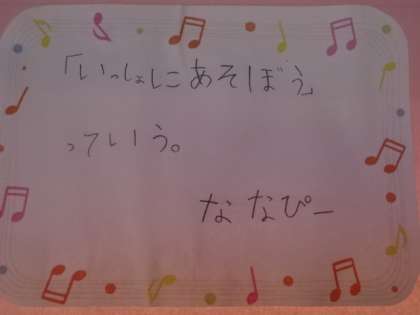 「いっしょにあそぼう」
っていう。
ななぴー